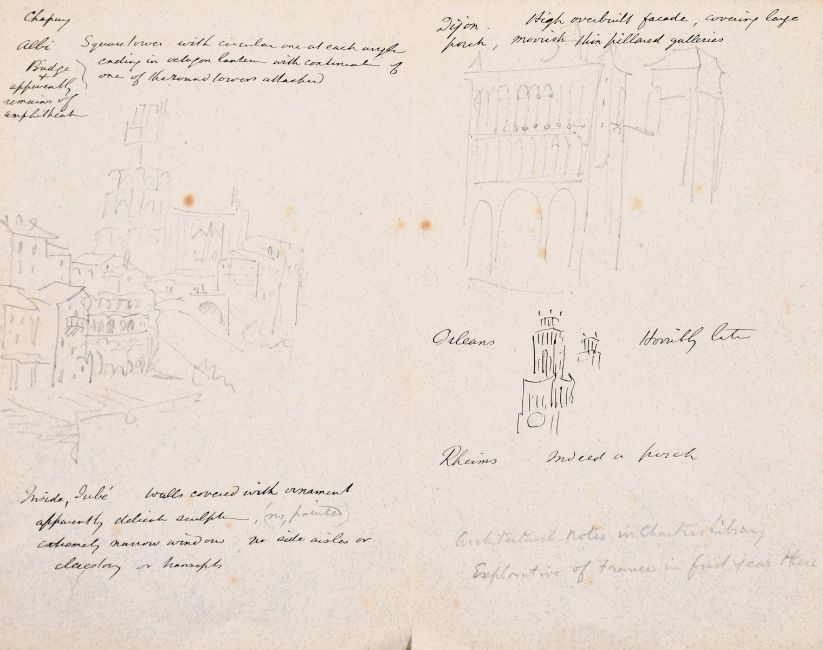 Chapuy
Albi Square tower with circular one at each angle
ending in octagon lantern with continuate of
one of the round towers attached
Bridge
+
apparently
remains of
amphitheatre
Inside, Jubé Walls covered with ornament
apparently delicate sculpture, (no, painted)
extremely narrow window no side aisles or
clerestory or transepts
Dijon. High overbuilt facade, covering large
porch, moorish thin pillared galleries
Orleans Horribly late
Rheims indeed a porch
Architectural notes in Chartres Library
Explorative of France in first year there